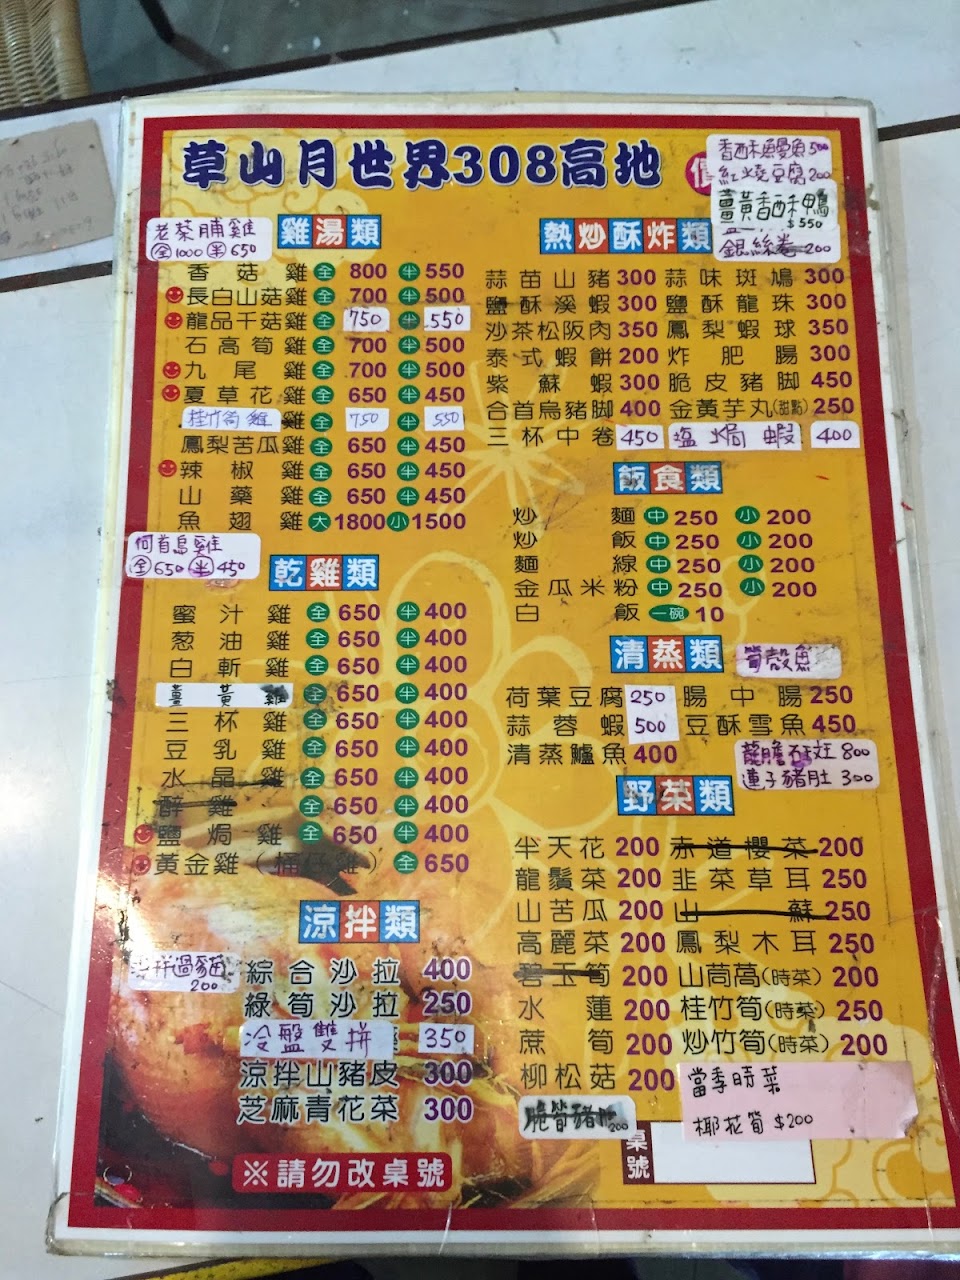 草山月世界308高地
香酥鱼曼魚500
紅燒豆腐200
薑黃香酥鴨
$550
銀絲卷 200
老菜脯雞
全1000 半650
雞湯類
香菇雞 全 800 半 550
長白山菇雞 全 700 半 500
龍品千菇雞 全 750 半 550
石高筍雞 全 700 半 500
九尾雞 全 700 半 500
夏草花雞 全 650 半 450
桂竹筍雞 全 750 半 550
鳳梨苦瓜雞 全 650 半 450
辣椒雞 全 650 半 450
山藥雞 全 650 半 450
魚翅雞 大 1800 小 1500
何首烏雞
全650 半450
乾雞類
蜜汁雞 全 650 半 400
葱油雞 全 650 半 400
白斬雞 全 650 半 400
薑黃雞 全 650 半 400
三杯雞 全 650 半 400
豆乳雞 全 650 半 400
水晶雞 全 650 半 400
醉雞 全 650 半 400
鹽焗雞 全 650 半 400
黃金雞(桶仔雞) 全 650
涼拌類
涼拌過貓
200
綜合沙拉 400
綠筍沙拉 250
冷盤雙拼 350
涼拌山豬皮 300
芝麻青花菜 300
※請勿改桌號
熱炒酥炸類
蒜苗山豬 300 蒜味斑鳩 300
鹽酥溪蝦 300 鹽酥龍珠 300
沙茶松阪肉 350 鳳梨蝦球 350
泰式蝦餅 200 炸肥腸 300
紫蘇蝦 300 脆皮豬脚 450
合首烏豬脚 400 金黃芋丸(甜點) 250
三杯中卷 450 塩焗蝦 400
飯食類
炒麵 中 250 小 200
炒飯 中 250 小 200
麵線 中 250 小 200
金瓜米粉 中 250 小 200
白飯 一碗 10
清蒸類
筍殼魚
荷葉豆腐 250 腸中腸 250
蒜蓉蝦 500 豆酥雪魚 450
清蒸鱸魚 400
龍膽石斑 800
蓮子豬肚 300
野菜類
半天花 200 赤道櫻菜 200
龍鬚菜 200 韭菜草耳 250
山苦瓜 200 山蘇 250
高麗菜 200 鳳梨木耳 250
碧玉筍 200 山茼萵(時菜) 200
水蓮 200 桂竹筍(時菜) 250
蔗筍 200 炒竹筍(時菜) 200
柳松菇 200
當季時菜
椰花筍 $200
脆筍豬肚
200
桌號